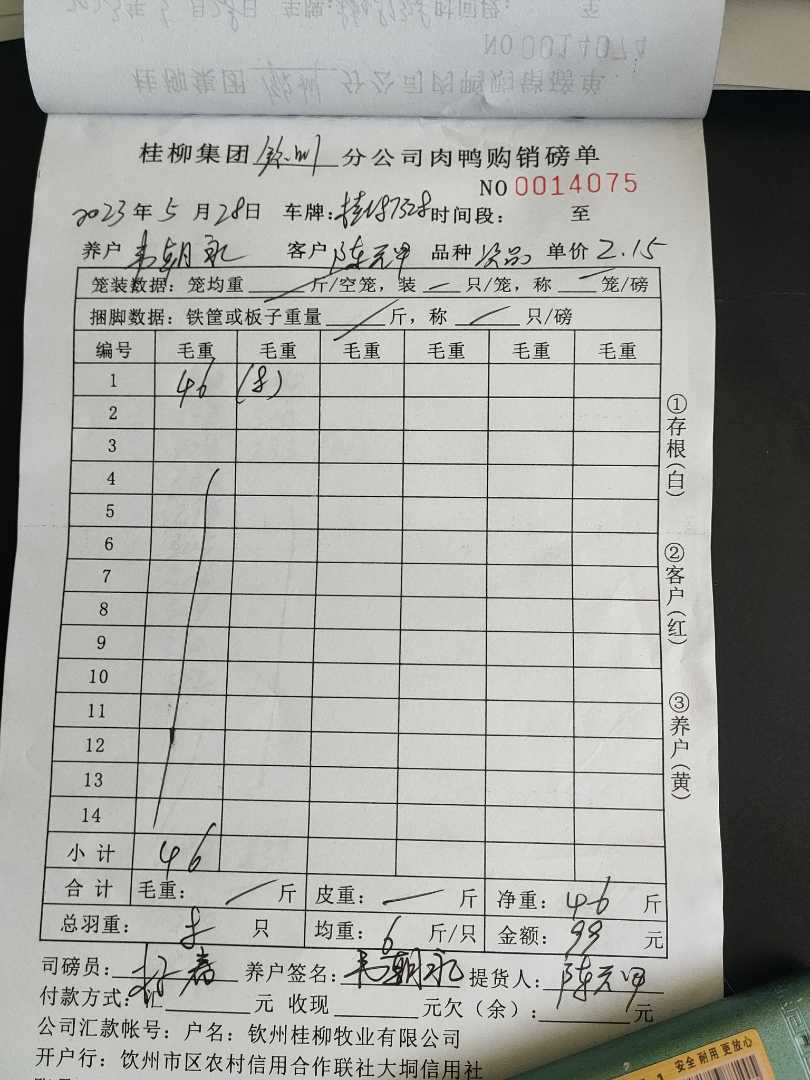 NO 0014074
桂柳集团 钦州 分公司肉鸭购销磅单
桂柳集团 钦州 分公司肉鸭购销磅单
NO 0014075
2023 年 5 月 28 日 车牌: 时间段: 至
养户 韦朝永 客户 陈元甲 品种 次品 单价 2.15
笼装数据: 笼均重 斤/空笼, 装 只/笼, 称 笼/磅
捆脚数据: 铁筐或板子重量 斤, 称 只/磅
编号 毛重 毛重 毛重 毛重 毛重 毛重
1 46
2
3
4
5
6
7
8
9
10
11
12
13
14
小计 46
合计 毛重: 斤 皮重: 斤 净重: 46 斤
总羽重: 只 均重: 6 斤/只 金额: 99 元
司磅员: 养户签名: 韦朝永 提货人: 陈元甲
付款方式: 汇 元 收现 元欠(余): 元
公司汇款帐号: 户名: 钦州桂柳牧业有限公司
开户行: 饮州市区农村信用合作联社大垌信用社
①存根(白)
②客户(红)
③养户(黄)
安全 耐用 更放心